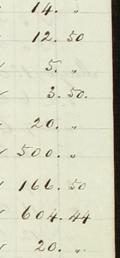 14. "
12. 50
5. "
3. 50.
20. "
500. "
166. 50
604. 44
20. "